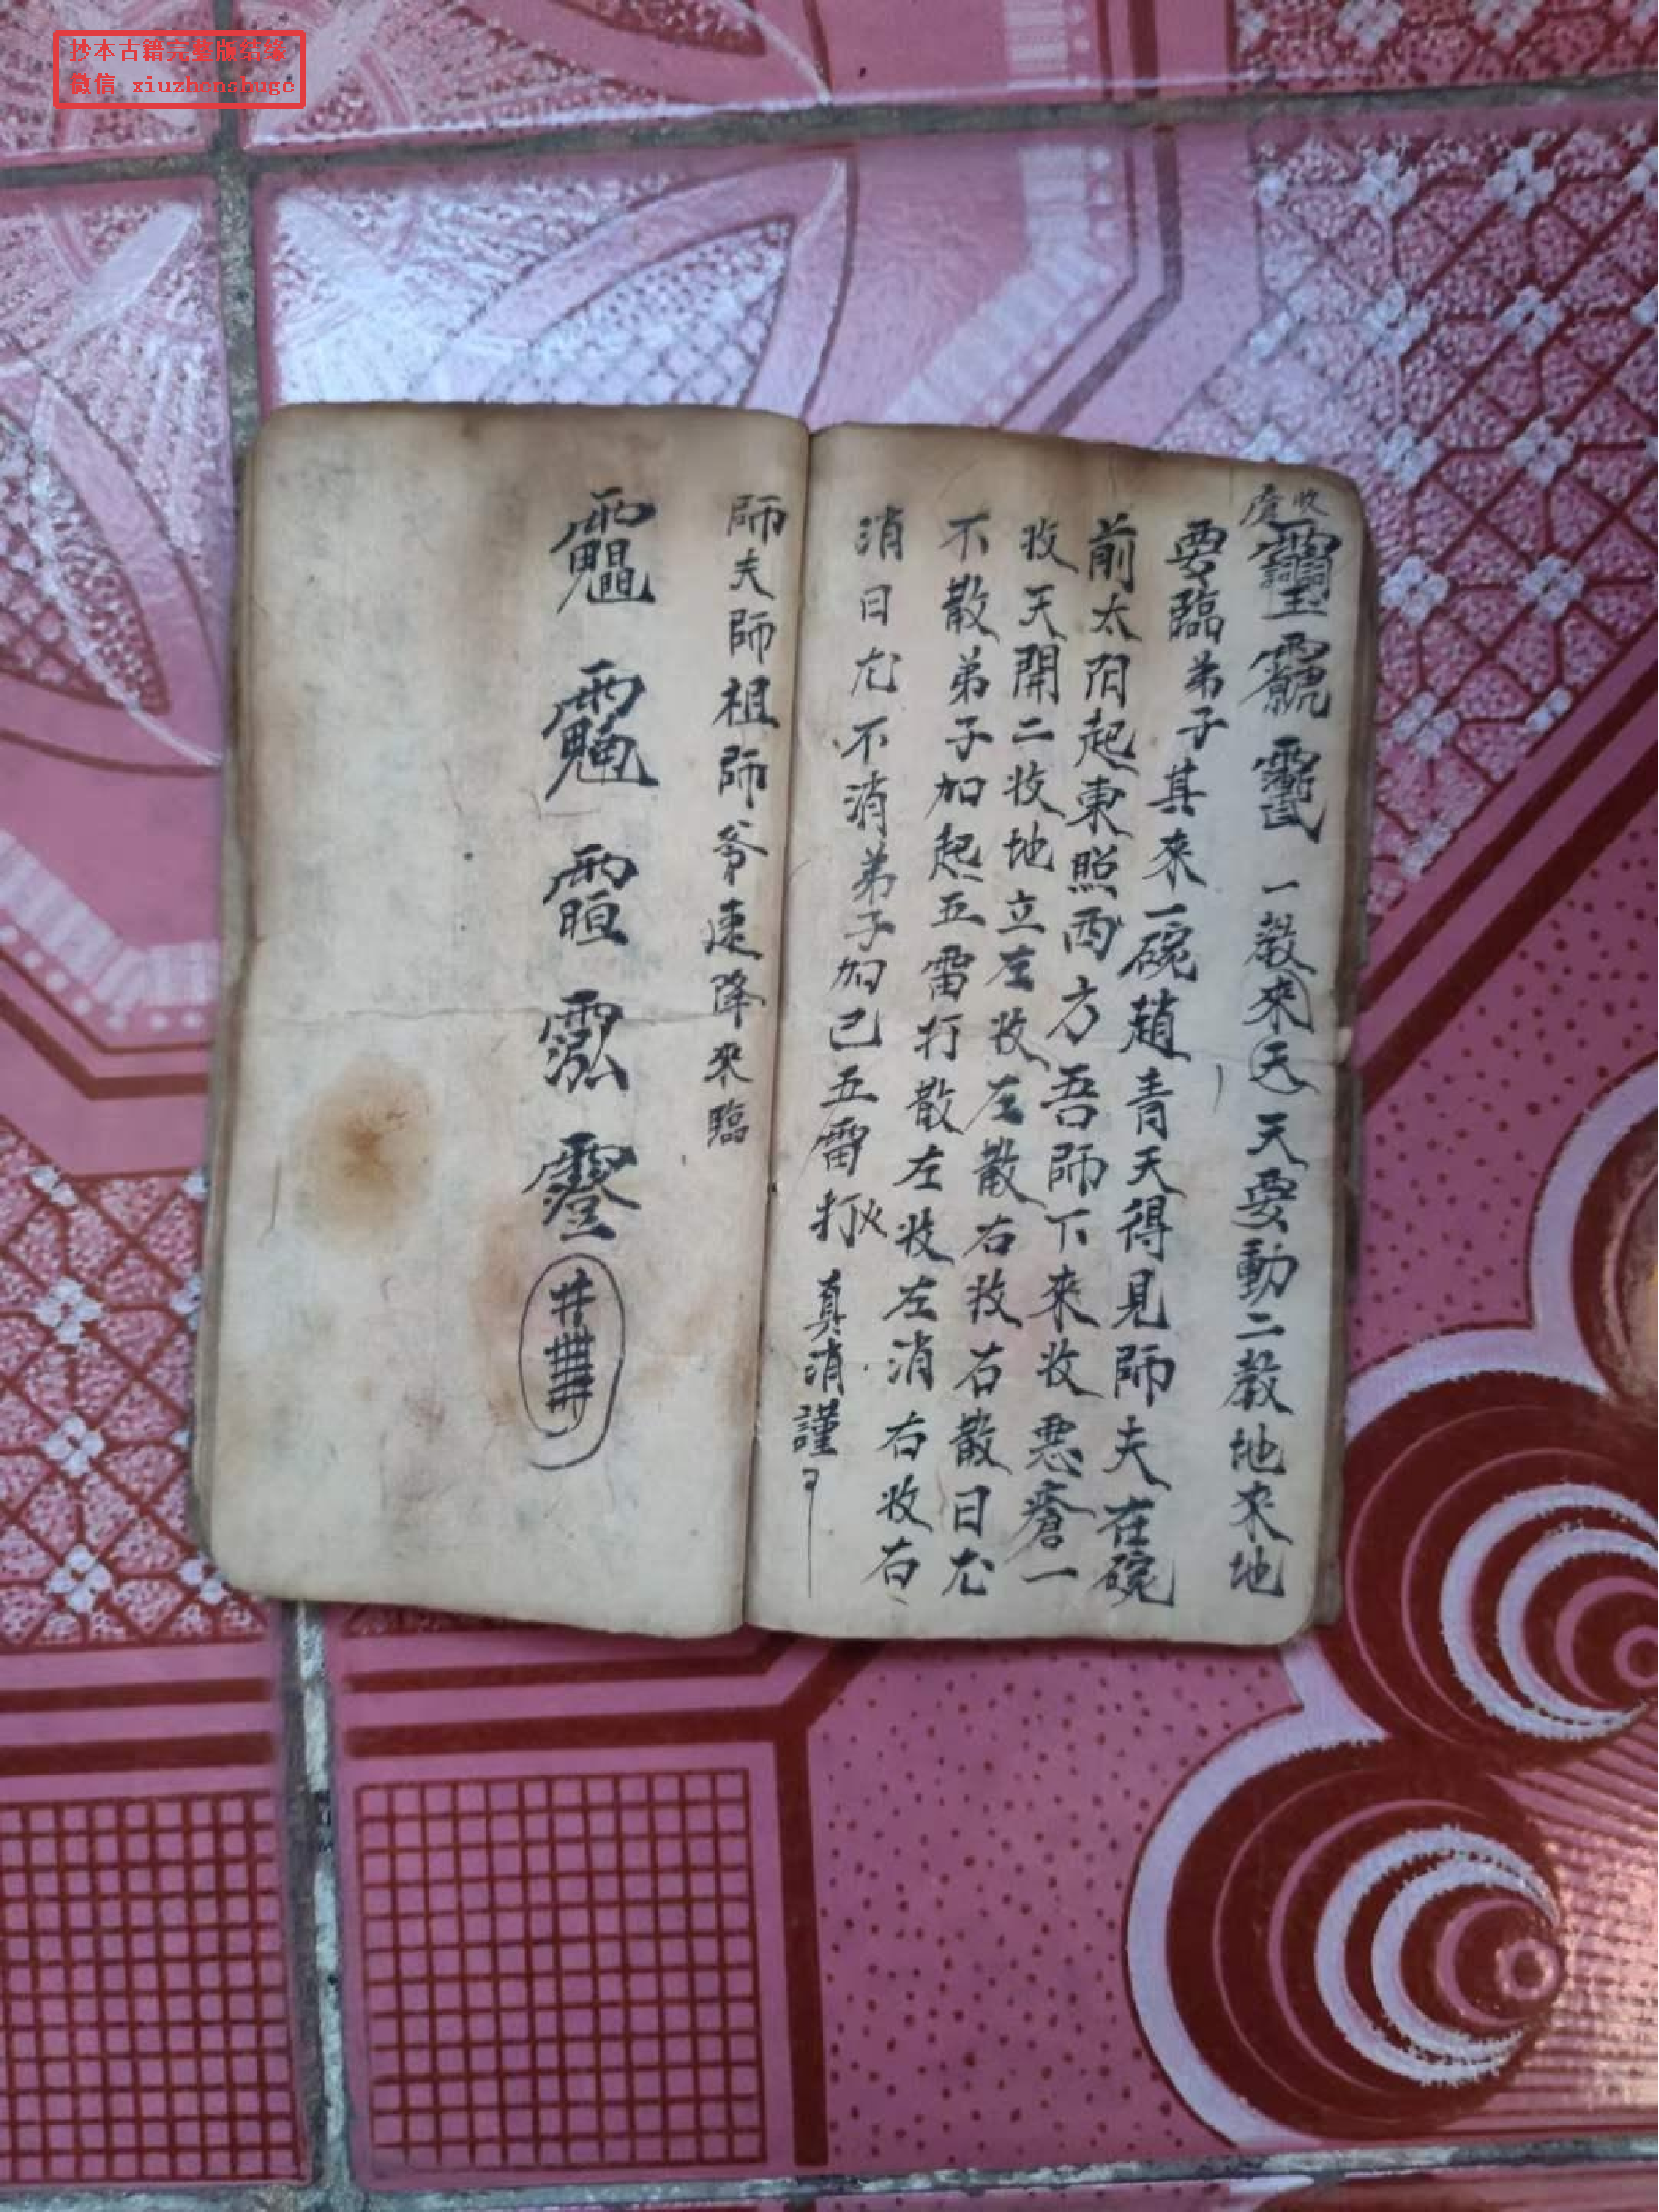 抄本古籍完整版结缘
微信 xiuzhenshuge
收
一教來天天要動二教地來地
要臨弟子其來一碗趙青天得見師夫在碗
前太阳起東照西方吾師下來收惡瘡一
收天開二收地立左收左散右收右散日尤
不散弟子加起五雷打散左收左消右收右
消日尤不消弟子加已五雷打 真消謹
師夫師祖師爷速降來臨